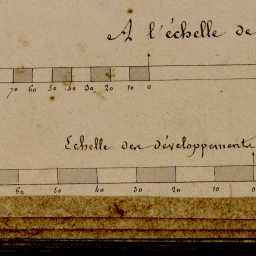 A l'échelle de
70 60 50 40 30 20 10 0
Echelle des développements
60 50 40 30 20 10 0